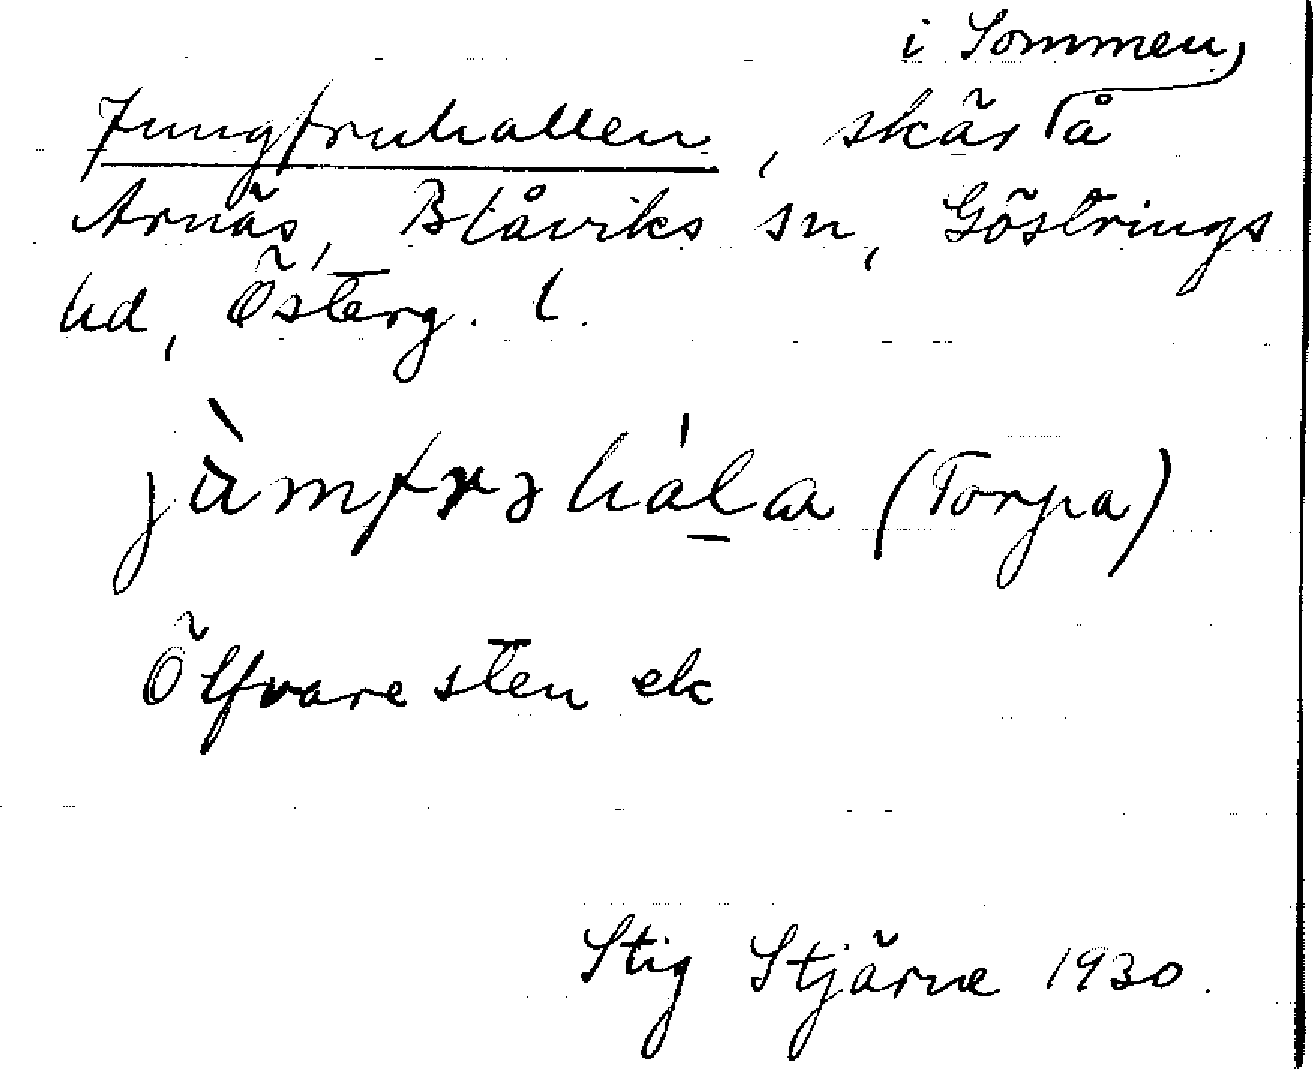 i Sommen,
Jungfruhallen, skär å
Arnäs, Blåviks sn, Göstrings
hd, Österg. l.
jàmfrəhála (Torpa)
Ölfvaresten ek
Stig Stjärne 1930.